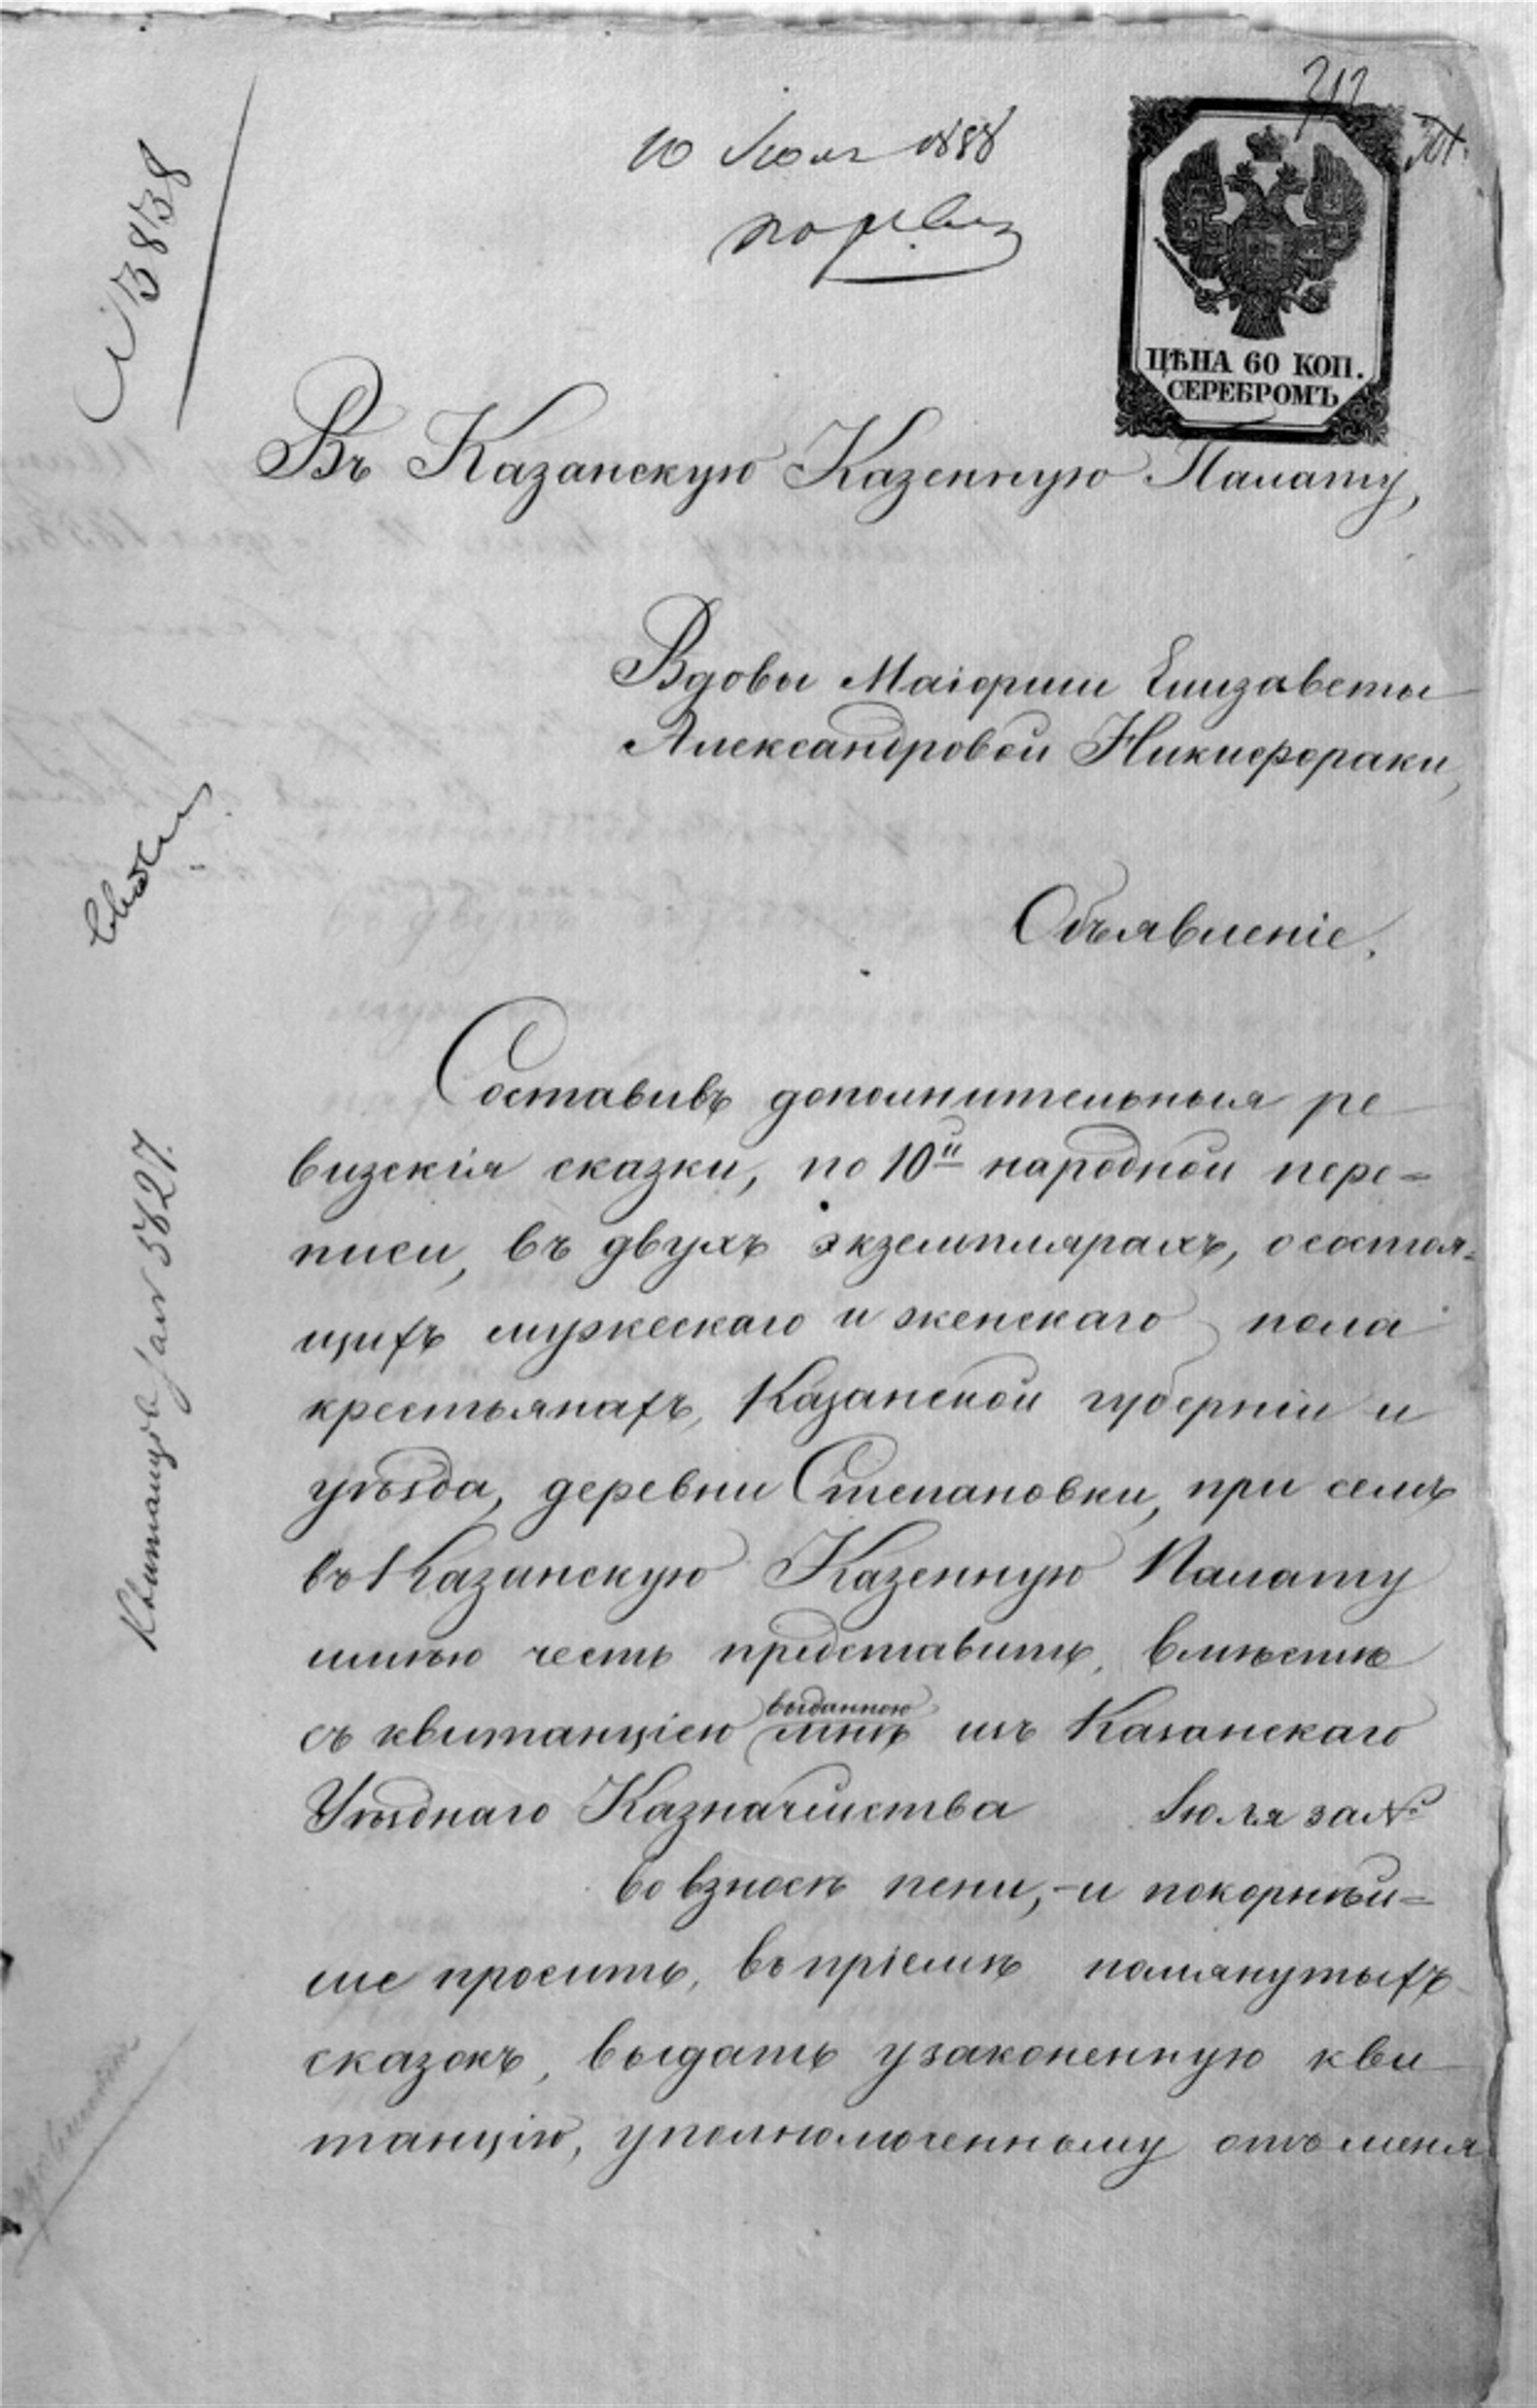 312
10 Июля 1858
№ 3838
ЦѢНА 60 КОП.
СЕРЕБРОМЪ
Въ Казанскую Казенную Палату,
Вдовы Маіорши Елизаветы
Александровой Никифораки,
Объявленіе.
Составивъ дополнительныя ре
визскія сказки, по 10й народной пере=
писи, въ двухъ экземплярахъ, о состоя=
щихъ мужескаго и женскаго пола
крестьянахъ, Казанской губерніи и
уѣзда, деревни Степановки, при семъ
въ Казанскую Казенную Палату
имѣю честь представить, вмѣстѣ
съ квитанціею выданною мнѣ изъ Казанскаго
Уѣзднаго Казначейства Іюля за №
во взносѣ пени,-и покорнѣй=
ше просить, въ пріемѣ помянутыхъ
сказокъ, выдать узаконенную кви
танцію, уполномоченному отъ меня
Квитанція 5827.